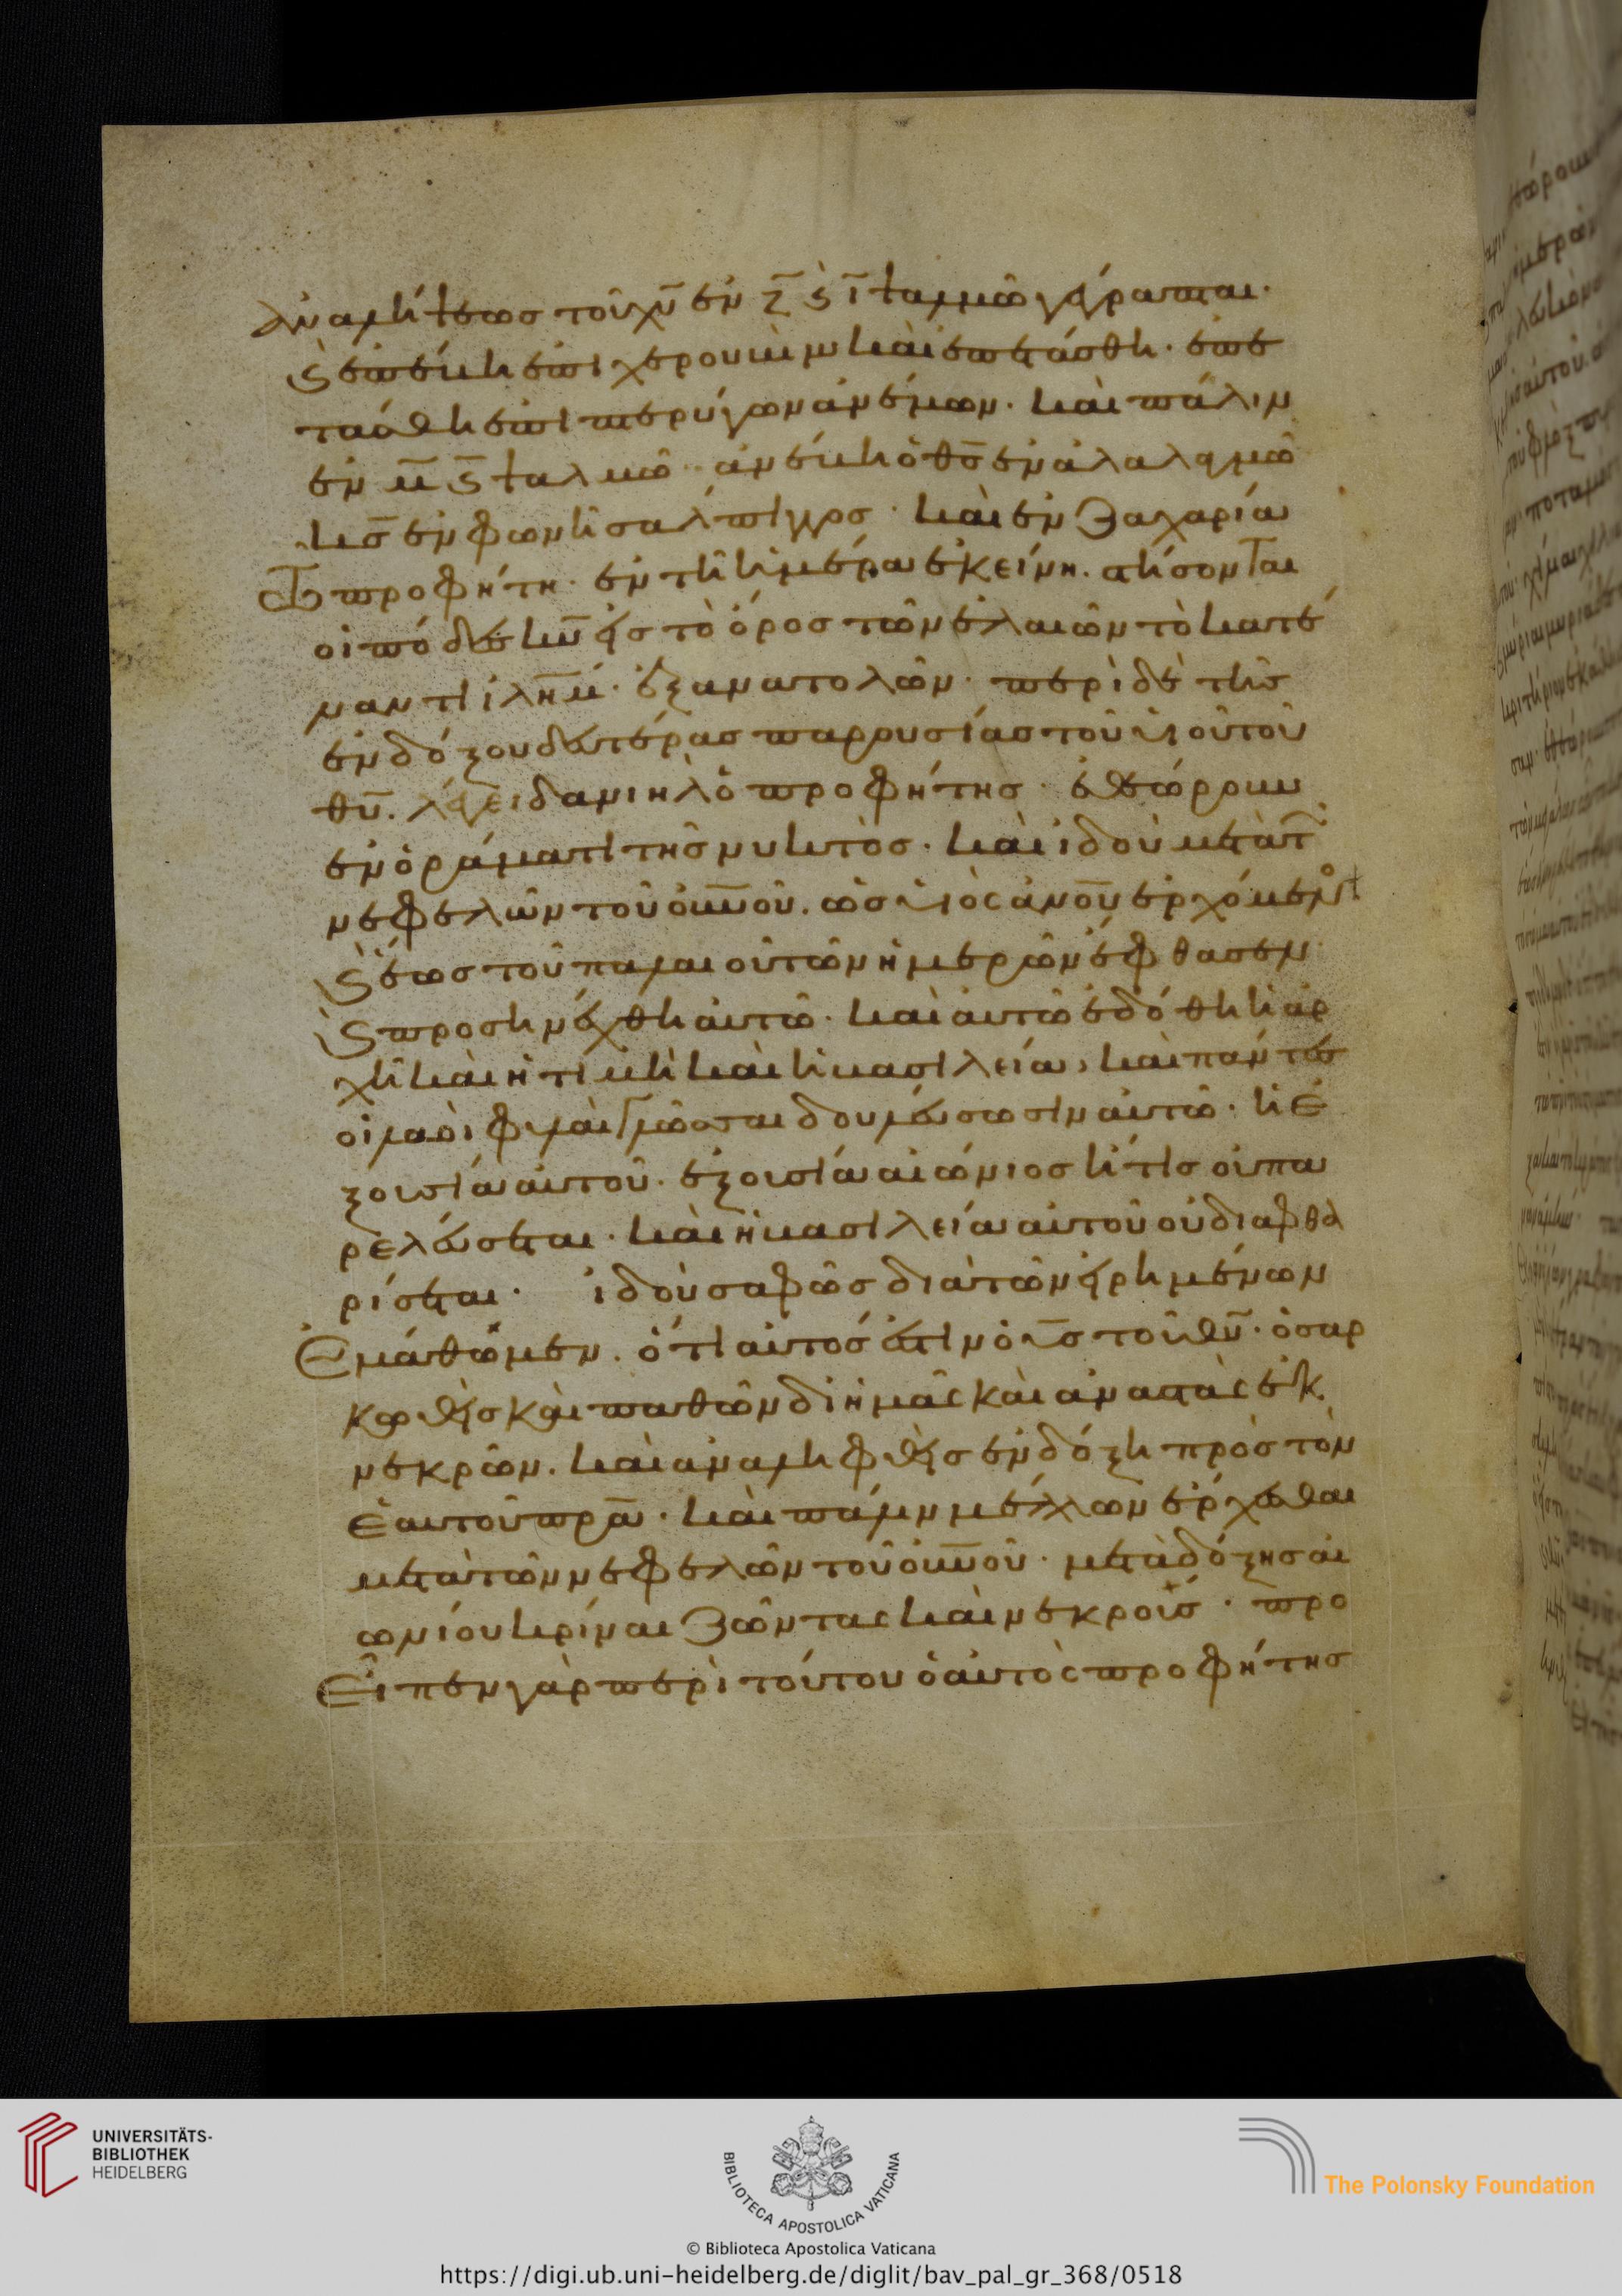 ἀναλήψεως τοῦ χυ ἐν ζ ϗ ι ψαλμῶ γέγραπται·
ϗ ἐπέβη ἐπὶ χερουβὶμ καὶ ἐπετάσθη· ἐπε
τάσθη ἐπὶ πτερύγων ἀνέμων· καὶ πάλιν
ἐν μς ψαλμῶ· ἀνέβη ὁ θς ἐν ἀλαλαγμῶ
κς ἐν φωνῆ σάλπιγγος· καὶ ἐν Ζαχαρία
τῶ προφήτη· ἐν τῆ ἡμέρα ἐκείνη· στήσονται
οἱ πόδες κυ εἰς τὸ ὄρος τῶν ἐλαιῶν τὸ κατέ
ναντι ιλημ· ἐξ ανατολῶν· περὶ δὲ τῆς
ἐνδόξου δευτέρας παρουσίας τοῦ υἱοῦ τοῦ
θυ· λέγει δανιηλ ὁ προφήτης· ἐθεώρουν
ἐν ὁράματι τῆς νυκτὸς· καὶ ἰδοὺ μετὰ τ
νεφελῶν τοῦ οὐνοῦ· ὡς υἱὸς ἀνου ἐρχόμενος
ϗ ἕως τοῦ παλαιοῦ τῶν ἡμερῶν ἔφθασεν·
ϗ προσηνέχθη αὐτῶ· καὶ αὐτῶ ἐδόθη ἡ ἀρ
χῆ καὶ ἡ τιμὴ καὶ ἡ βασιλεία, καὶ πάντες
οἱ λαοὶ φυλαὶ γλῶσσαι δουλεύσωσιν αὐτῶ· ἡ ἐ
ξουσία αὐτοῦ· ἐξουσία αἰώνιος ἥτις οὐ πα
ρελεύσεται· καὶ ἡ βασιλεία αὐτοῦ οὐ διαφθα
ρίσεται· ἰδοὺ σαφῶς διὰ τῶν εἰρημένων
ἐμάθωμεν· ὅτι αὐτός ἐστιν ὁ υς τοῦ θυ· ὁ σαρ
κωθεὶς καὶ παθῶν δι ἡμᾶς καὶ ἀναστὰς ἐκ
νεκρῶν· καὶ ἀναληφθεὶς ἐν δόξη πρὸς τὸν
ἑαυτοῦ πρα· καὶ πάλιν μέλλων ἔρχεσθαι
μετὰ τῶν νεφελῶν τοῦ οὐνοῦ· μετὰ δόξης αἰ
ωνίου κρίναι ζῶντας καὶ νεκροίς· προ
Εἶπεν γὰρ περὶ τούτου ὁ αὐτὸς προφήτης
UNIVERSITÄTS-
BIBLIOTHEK
HEIDELBERG
BIBLIOTECA APOSTOLICA VATICANA
The Polonsky Foundation
© Biblioteca Apostolica Vaticana
https://digi.ub.uni-heidelberg.de/diglit/bav_pal_gr_368/0518